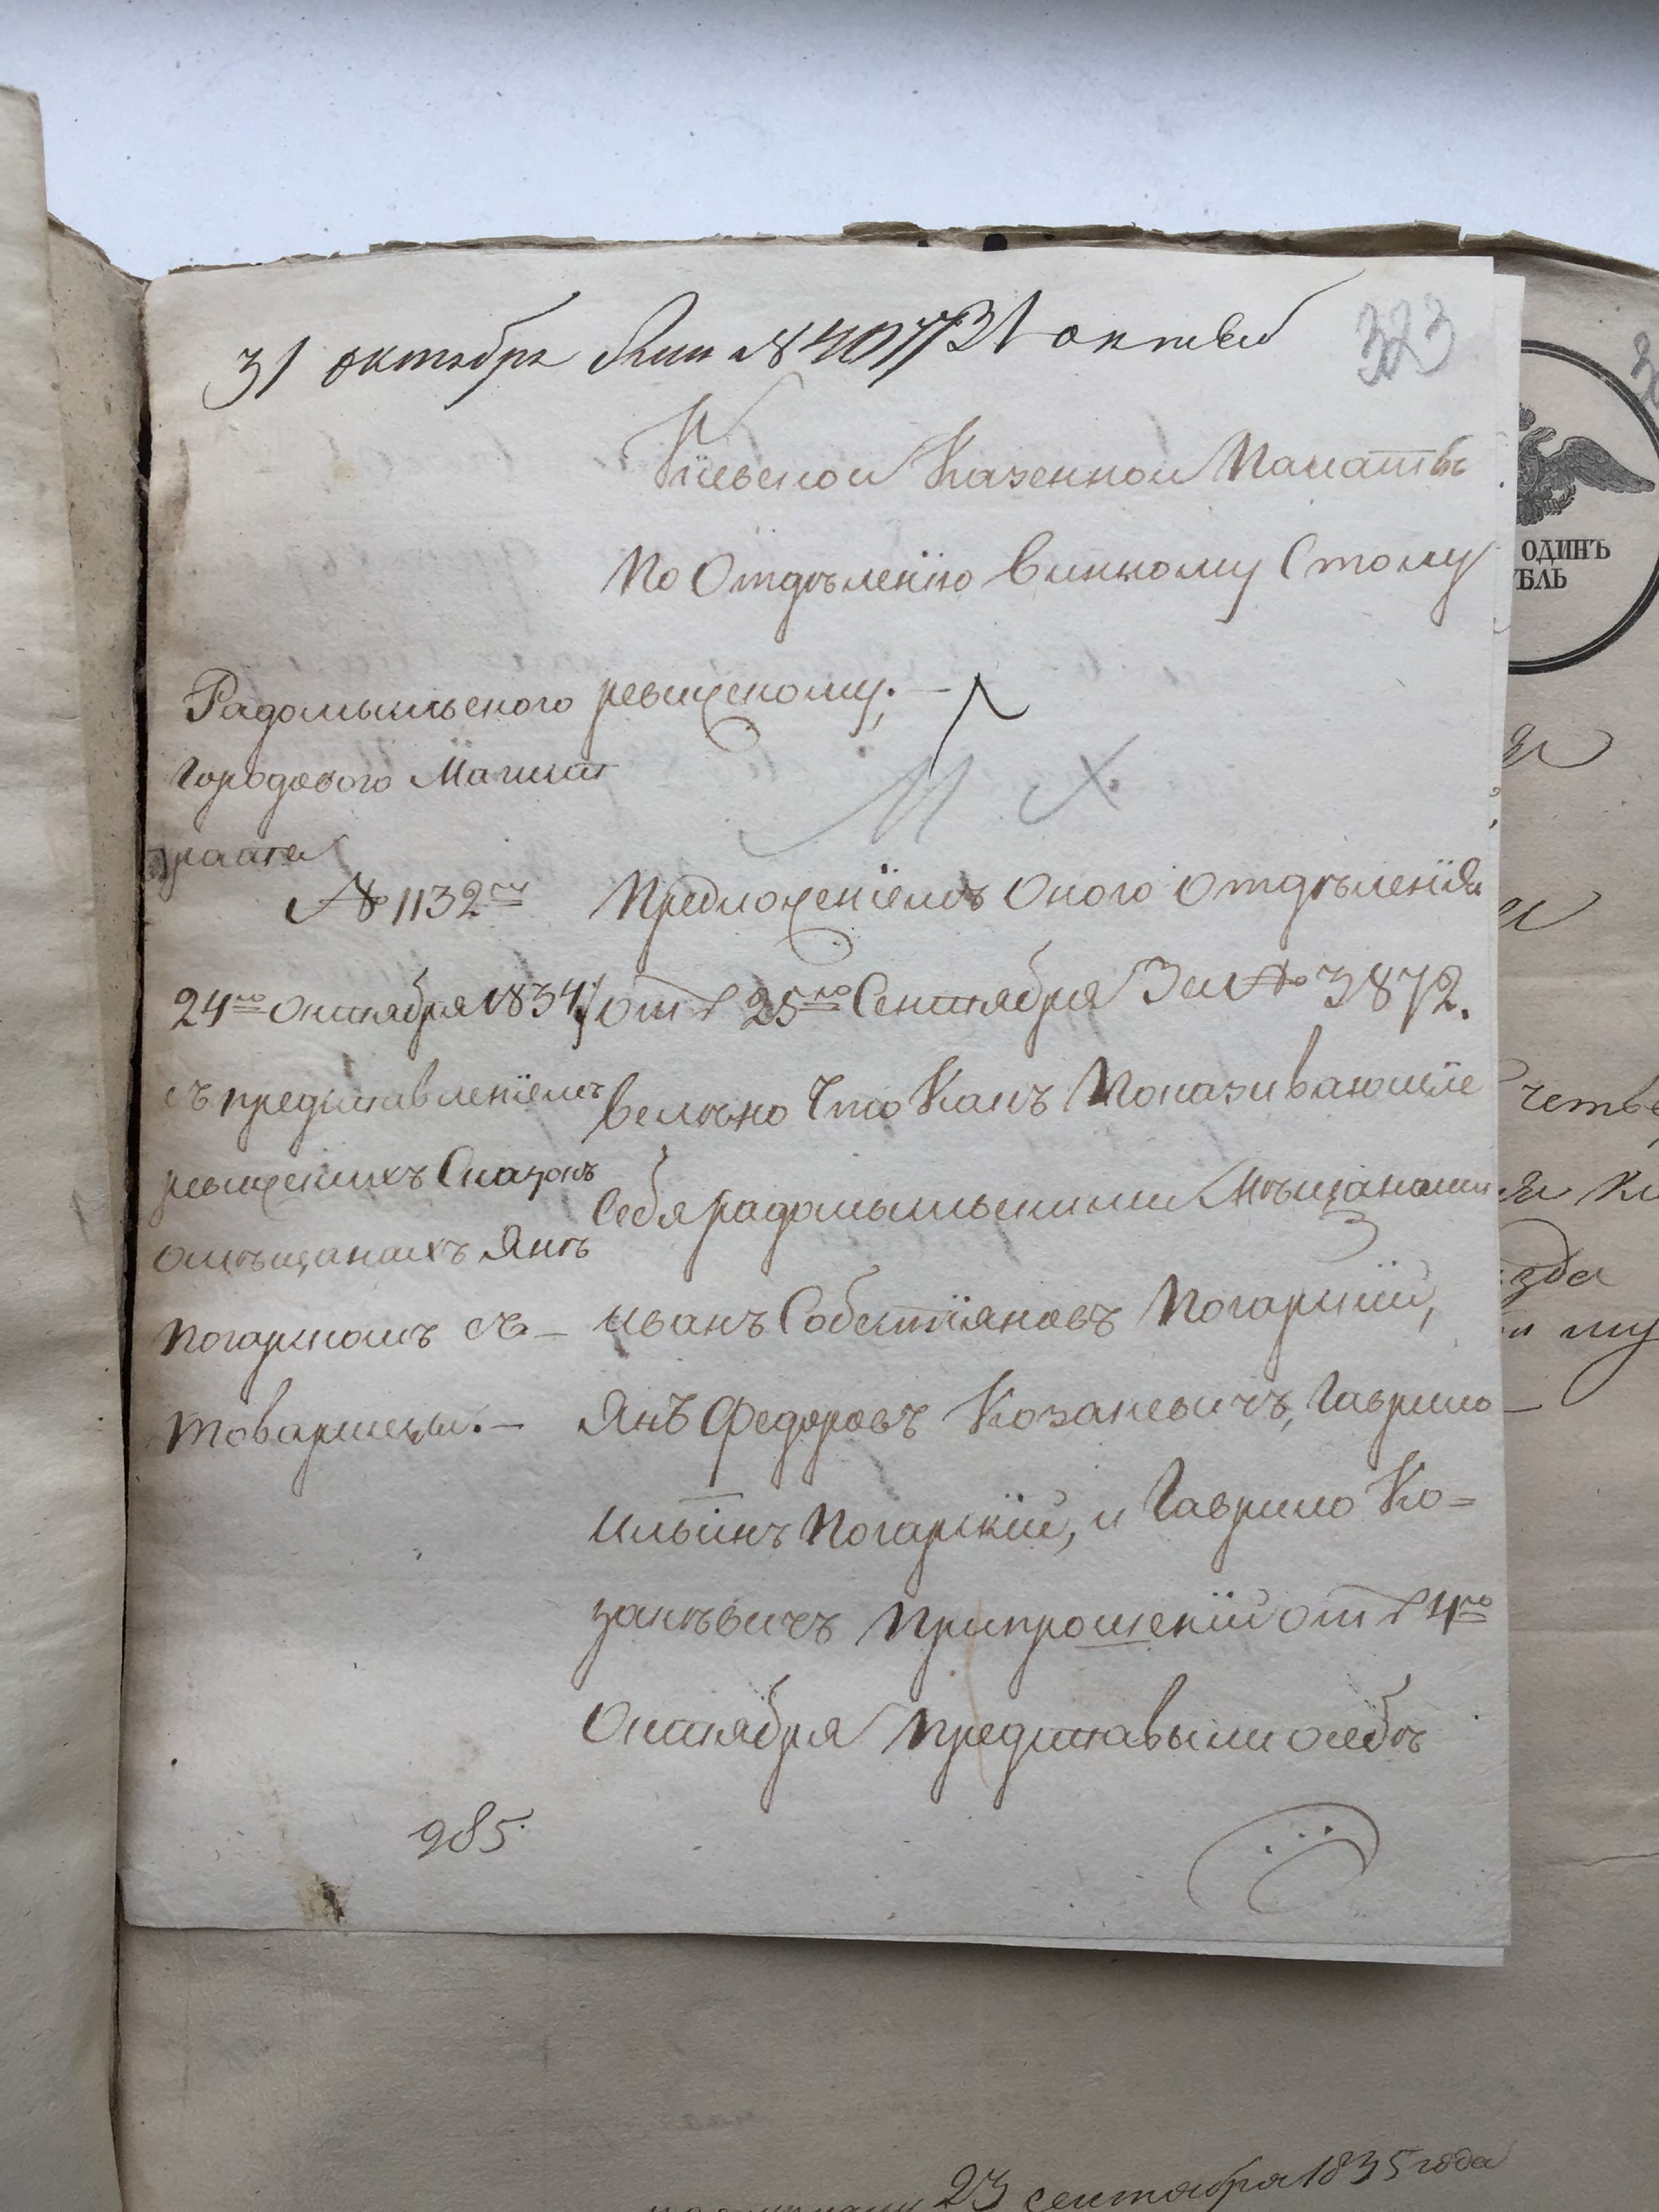 31 октября № 4077 31 октяб
323
Кіевской Казенной Палатъ
по Отдѣленію Винному Столу
ревижскому;
Радомысльского
Городового Магист
рата
№ 1132й
24го Октября 1834
съ представленіемъ
ревижскихъ Сказокъ
омѣщанахъ Янѣ
Погарскомъ съ
товарищы.—
Предложеніемъ Оного Отдѣленія
отъ 25го Сентября За № 3872.
велѣно Что Какъ Показивающіе
Себя радомысльскими Мѣщанами
Иванъ Собестіяновъ Погарскій,
Янъ Федоровъ Козакевичъ, Гаврило
Ильинъ Погарскій, и Гаврило Ко=
закѣвичъ Припрошеніи отъ 4го
Октября Представыли осебѣ
985.
ОДИНЪ
БЛЬ
четве
зда
му
23 сентября 1835 года